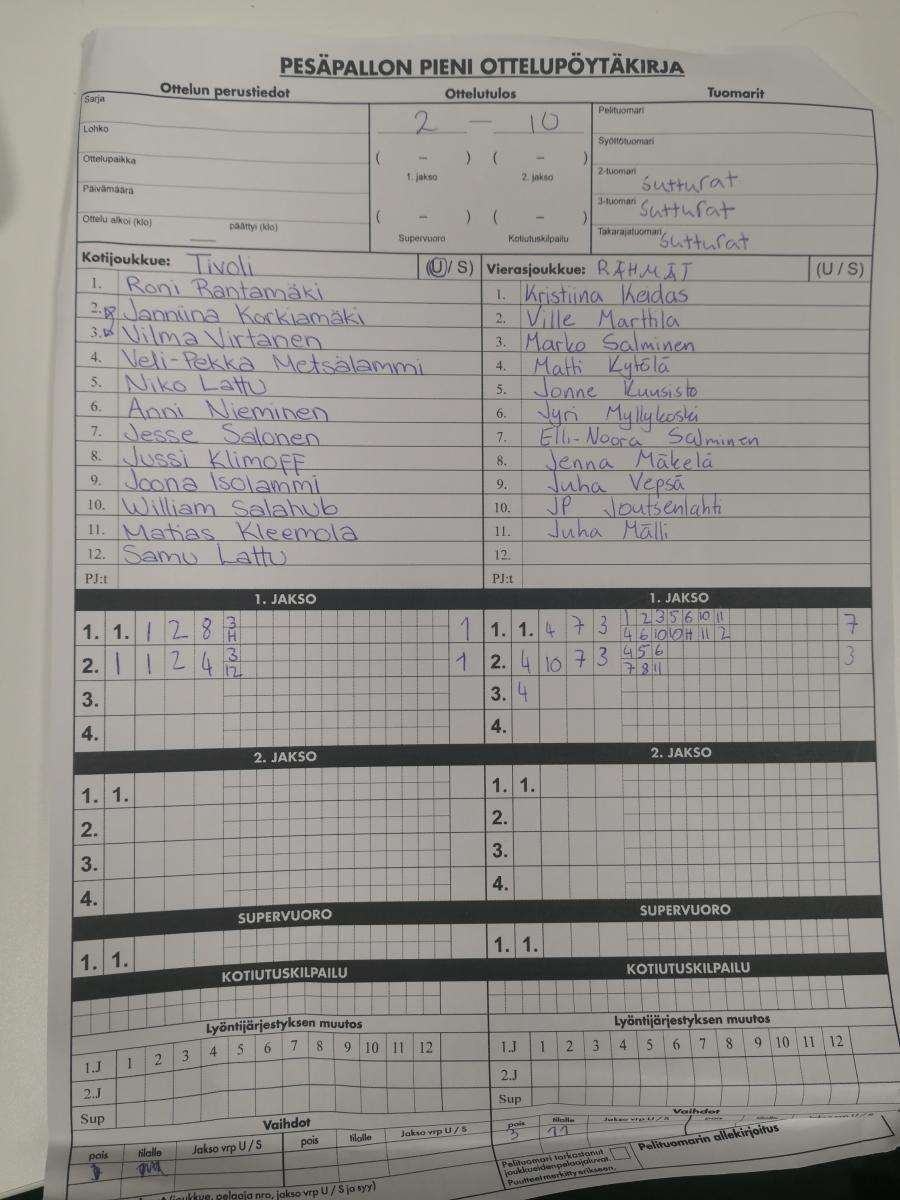 PESÄPALLON PIENI OTTELUPÖYTÄKIRJA
Ottelun perustiedot Ottelutulos Tuomarit
Sarja
Lohko
Ottelupaikka
Päivämäärä
Ottelu alkoi (klo) päättyi (klo)
2 – 10
( – ) ( – )
1. jakso 2. jakso
( – ) ( – )
Supervuoro Kotiutuskilpailu
Pelituomari
Syöttötuomari
2-tuomari sutturat
3-tuomari sutturat
Takarajatuomari sutturat
Kotijoukkue: Tivoli (U/S)
1. Roni Rantamäki
2. Janniina Korkiamäki
3. Vilma Virtanen
4. Veli-Pekka Metsälammi
5. Niko Lattu
6. Anni Nieminen
7. Jesse Salonen
8. Jussi Klimoff
9. Joona Isolammi
10. William Salahub
11. Matias Kleemola
12. Samu Lattu
PJ:t
Vierasjoukkue: RÄHMÄT (U/S)
1. Kristiina Keidas
2. Ville Marttila
3. Marko Salminen
4. Matti Kytölä
5. Jonne Kuusisto
6. Jyri Myllykoski
7. Elli-Noora Salminen
8. Jenna Mäkelä
9. Juha Vepsä
10. JP Joutsenlahti
11. Juha Mälli
12.
PJ:t
1. JAKSO
1. 1. 1 2 8 3 1
H
2. 1 1 2 4 3 1
12
3.
4.
1. JAKSO
1. 1. 4 7 3 1 2 3 5 6 10 11 7
4 6 10 10 H 11 2
2. 4 10 7 3 4 5 6 3
7 8 11
3. 4
4.
2. JAKSO
1. 1.
2.
3.
4.
2. JAKSO
1. 1.
2.
3.
4.
SUPERVUORO
1. 1.
SUPERVUORO
1. 1.
KOTIUTUSKILPAILU
KOTIUTUSKILPAILU
Lyöntijärjestyksen muutos
1.J 1 2 3 4 5 6 7 8 9 10 11 12
2.J
Sup
Lyöntijärjestyksen muutos
1.J 1 2 3 4 5 6 7 8 9 10 11 12
2.J
Sup
Vaihdot
pois tilalle Jakso vrp U / S pois tilalle Jakso vrp U / S
Vaihdot
pois tilalle Jakso vrp U / S
3 11
Pelituomari tarkastanut
joukkueiden pelaajaluvat.
Puutteet merkitty erikseen.
Pelituomarin allekirjoitus
(joukkue, pelaaja nro, jakso vrp U / S ja syy)